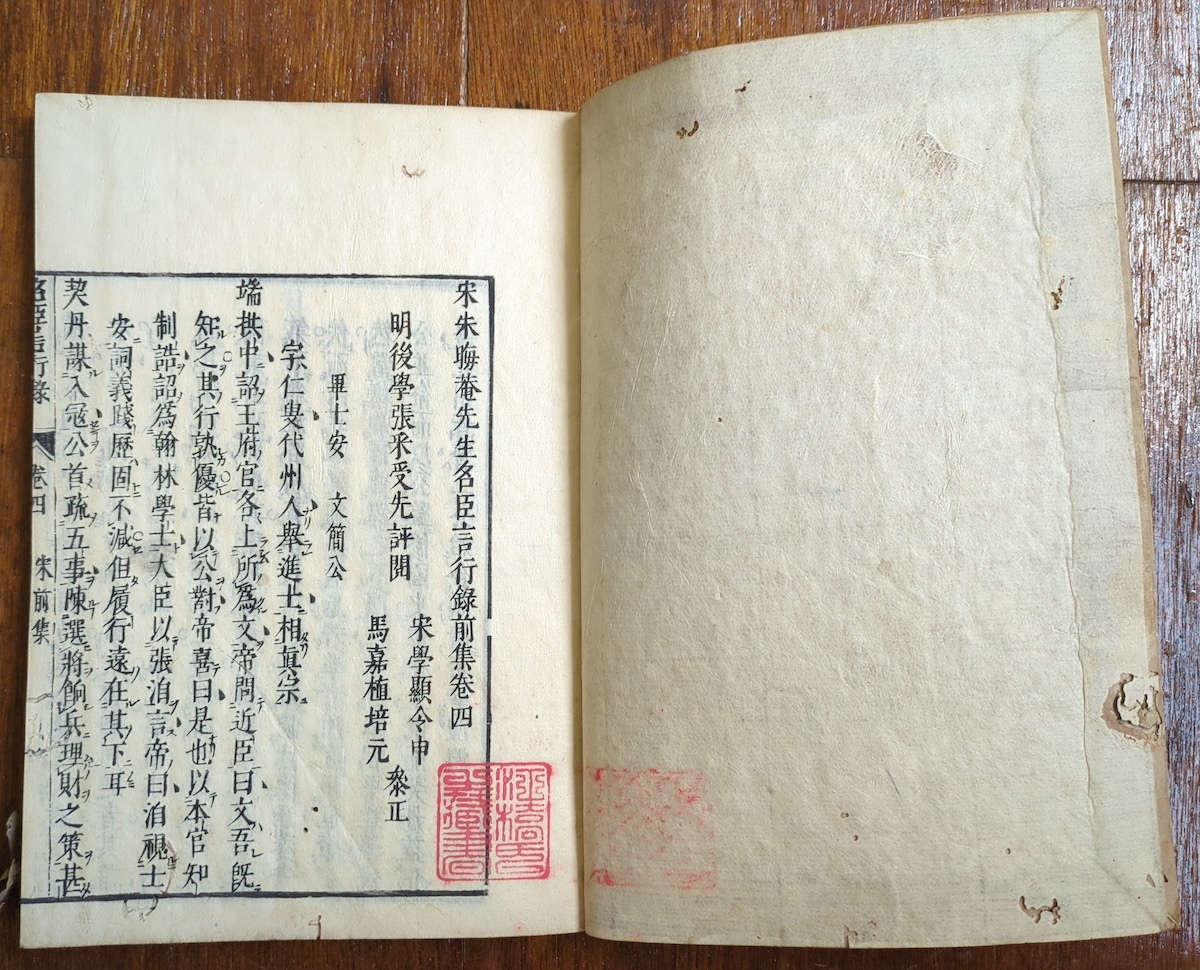 宋朱晦菴先生名臣言行錄前集卷四
明後學張采受先評閱
宋學顯令申
馬嘉植培元
參正
畢士安 文簡公
字仁叟代州人舉進士相眞宗
端拱中詔王府官各上所爲文帝問近臣曰文吾既
知之其行孰優皆以公對帝喜曰是也以本官知
制誥詔爲翰林學士大臣以張洎言帝曰洎視士
安詞義踐歷固不減但履行遠在其下耳
契丹謀入寇公首疏五事陳選將餉兵理財之策甚
名臣言行錄 卷四 宋前集